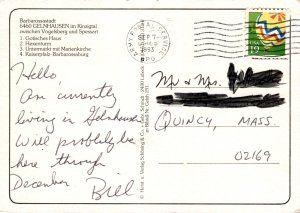 Barbarossastadt
6460 GELNHAUSEN im Kinzigtal
zwischen Vogelsberg und Spessart
1. Gotisches Haus
2. Hexenturm
3. Untermarkt mit Marienkirche
4. Kaiserpfalz-Barbarossaburg
Hello,
Am currently
living in Gelnhausen
Will probably be
here through
December
Bill
SEP 7
1993
19
Mr & Mrs.
QUINCY, MASS.
02169